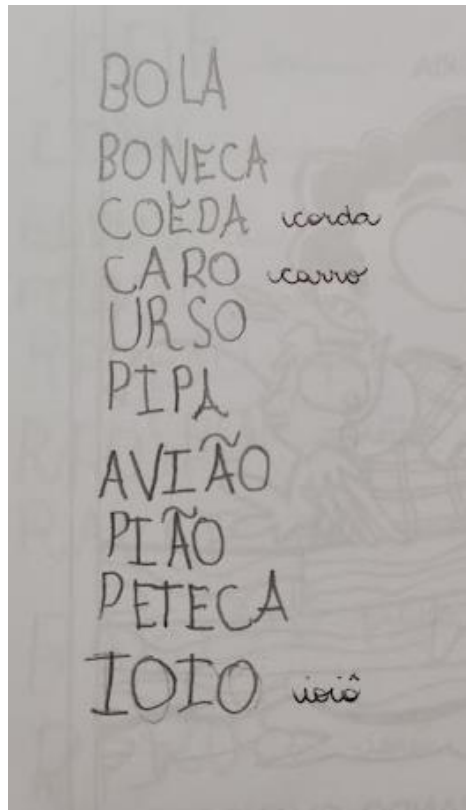 BOLA
BONECA
COEDA corda
CARO carro
URSO
PIPA
AVIÃO
PIÃO
PETECA
IOIO ioiô